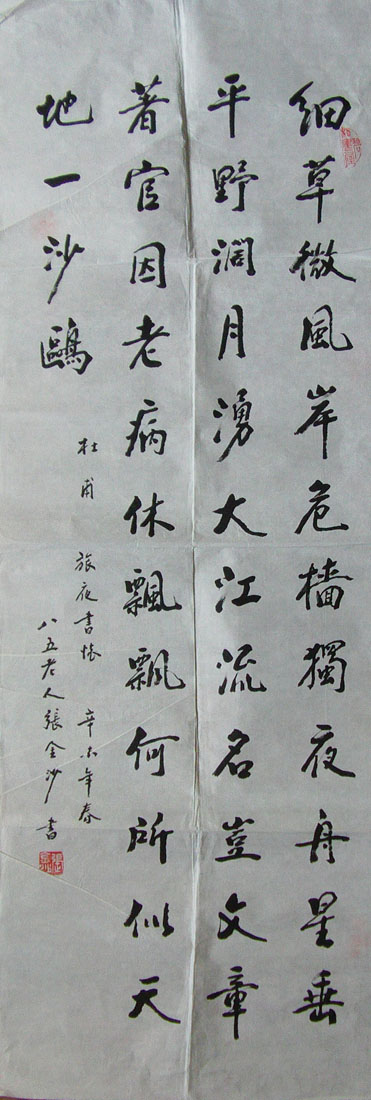 细草微風岸危檣獨夜舟星垂
平野濶月湧大江流名豈文章
著官因老病休飄飄何所似天
地一沙鷗
杜甫
旅夜書懷 辛未年春
八五老人張金沙書